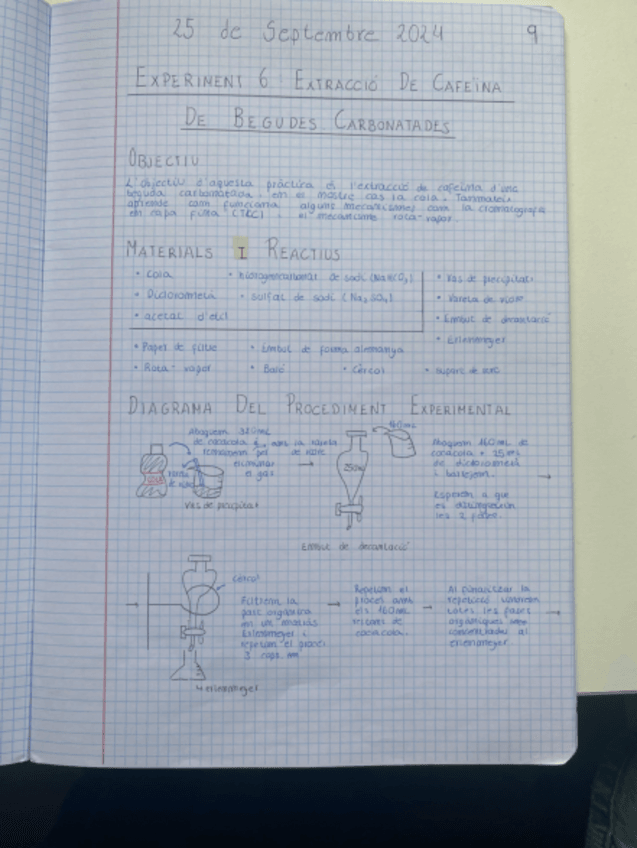 25 de Septembre 2024
9
EXPERIMENT 6 EXTRACCIÓ DE CAFEÏNA
DE BEGUDES CARBONATADES
OBJECTIU
L'objectiu d'aquesta pràctica és l'extracció de cafeïna d'una
beguda carbonatada, en el nostre cas la cola. Tanmateix
aprendre com funciona alguns mecanismes com la cromatografia
en capa fina (TLC) i el mecanisme rota-vapor.
MATERIALS I REACTIUS
• Cola
• hidrogencarbonat de sodi (NaHCO3)
• Vas de precipitats
• Diclorometà
• sulfat de sodi (Na2SO4)
• Vareta de vidre
• acetat d'etil
• Embut de decantació
• Erlenmeyer
• Paper de filtre
• Embut de forma alemanya
• Rota-vapor
• Baló
• Cèrcol
• suport de
DIAGRAMA DEL PROCEDIMENT EXPERIMENTAL
Aboquem 320mL
de cocacola i amb la vareta
remenem per de vidre
eliminar
el gas
→
vareta
de vidre
Vas de precipitat
160mL
250mL
Embut de decantació
Aboquem 160mL de
cocacola + 25mL
de diclorometà
i barregem.
Esperem a que
es distingeixin
les 2 fases.
→
→
Cèrcol
Filtrem la
part orgànica
en un matràs
Erlenmeyer i
repetim el procés
3 cops
↳ erlenmeyer
→
Repetim el
procés amb
els 160mL
restants de
cocacola.
→
Al finalitzar la
repetició
totes les fases
orgàniques
concentrades al
erlenmeyer.
→